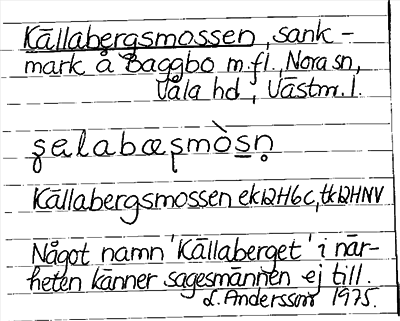 Källabergsmossen, sank-
mark å Baggbo m.fl., Nora sn,
Våla hd, Västm. l.
ʂælabæʂmòsn̥
Källabergsmossen ek12H6c, tk12HNV
Något namn 'Källaberget' i när-
heten känner sagesmannen ej till.
L. Andersson 1975.